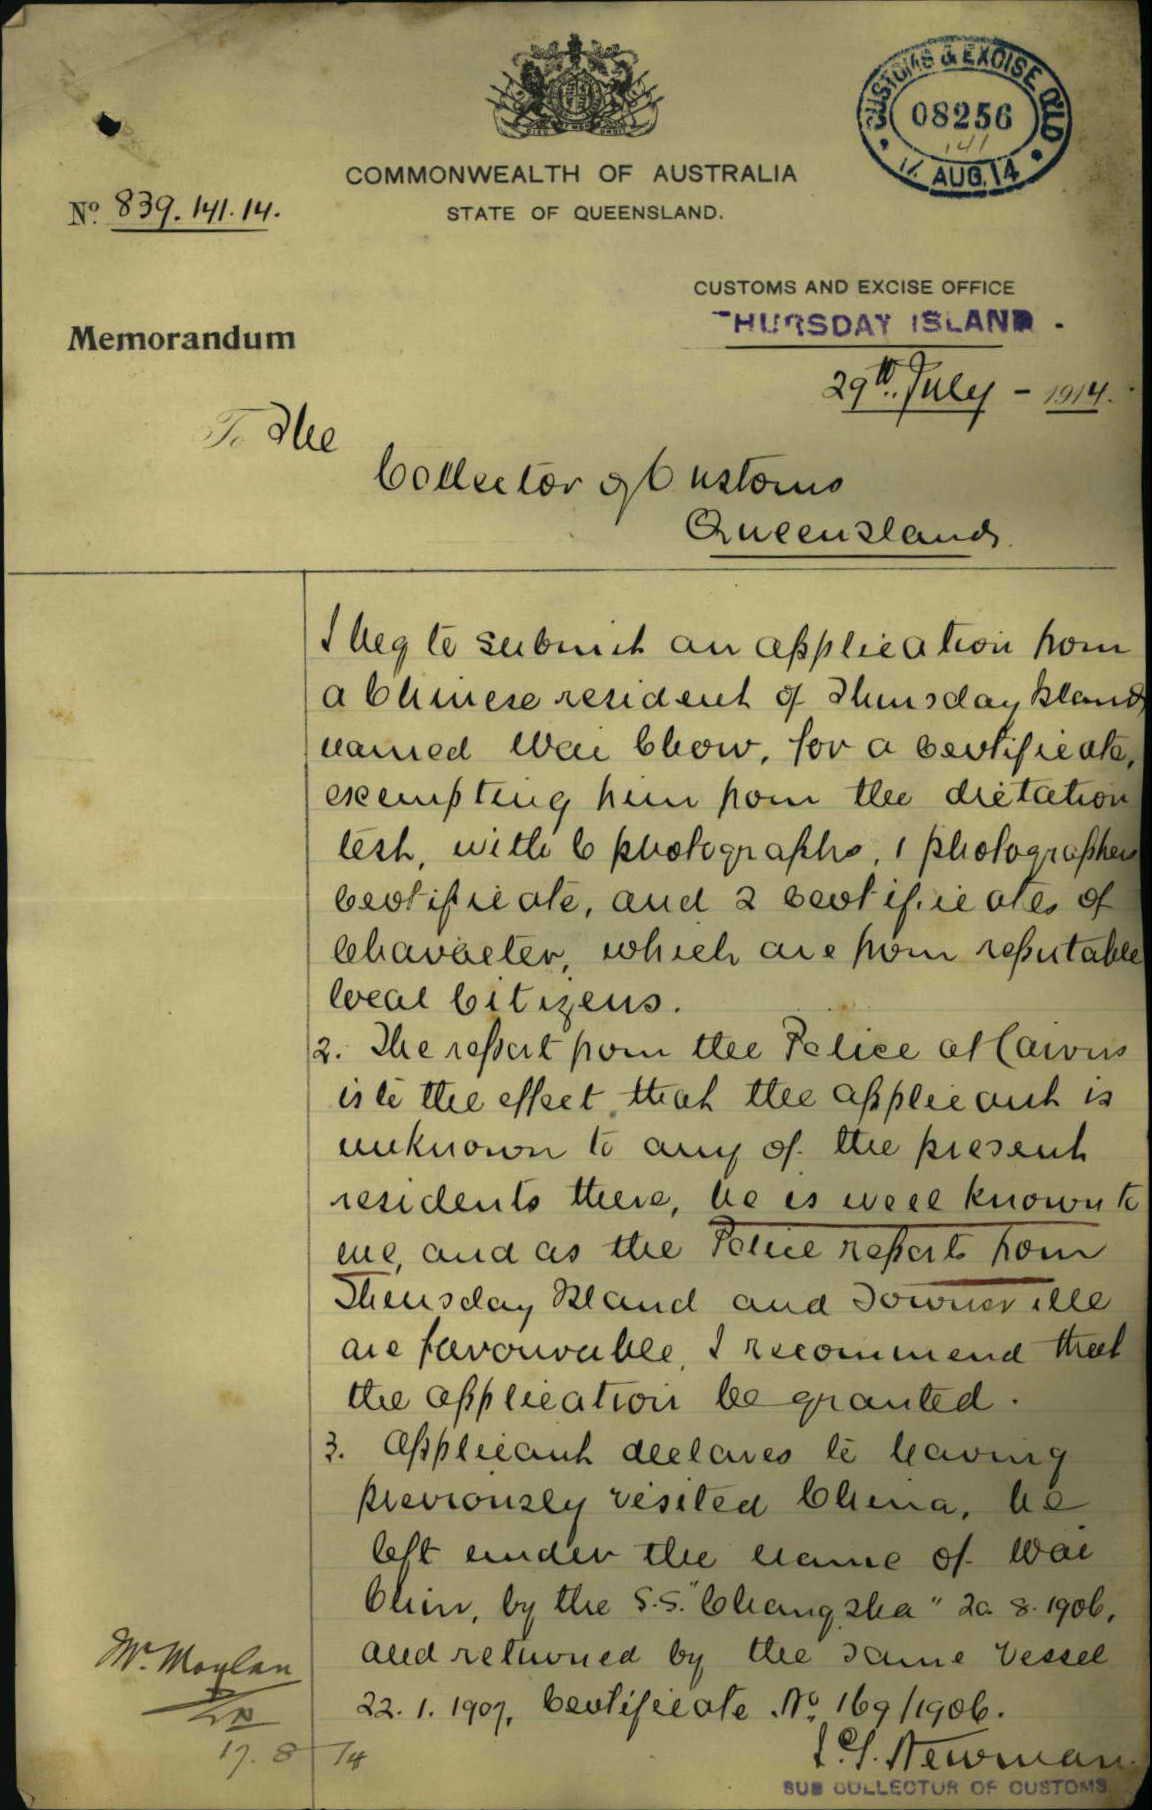 CUSTOMS & EXCISE QLD
08256
141
17 AUG. 14
COMMONWEALTH OF AUSTRALIA
STATE OF QUEENSLAND.
No. 839.141.14.
CUSTOMS AND EXCISE OFFICE
THURSDAY ISLAND.
Memorandum
29th. July - 1914.
To The
Collector of Customs
Queensland.
I beg to submit an application from
a Chinese resident of Thursday Island,
named Wai Chow, for a certificate,
exempting him from the dictation
test, with 6 photographs, 1 photographers
certificate, and 2 certificates of
Character, which are from reputable
local Citizens.
2. The report from the Police at Cairns
is to the effect that the applicant is
unknown to any of the present
residents there, he is well known to
me, and as the Police reports from
Thursday Island and Townsville
are favourable, I recommend that
the application be granted.
3. Applicant declares to having
previously visited China, he
left under the name of Wai
Chin, by the S.S. "Changsha" 20.8.1906,
and returned by the same vessel
22.1.1907, Certificate No 169/1906.
Mr. Moylan
17.8/14
Newman.
SUB COLLECTOR OF CUSTOMS